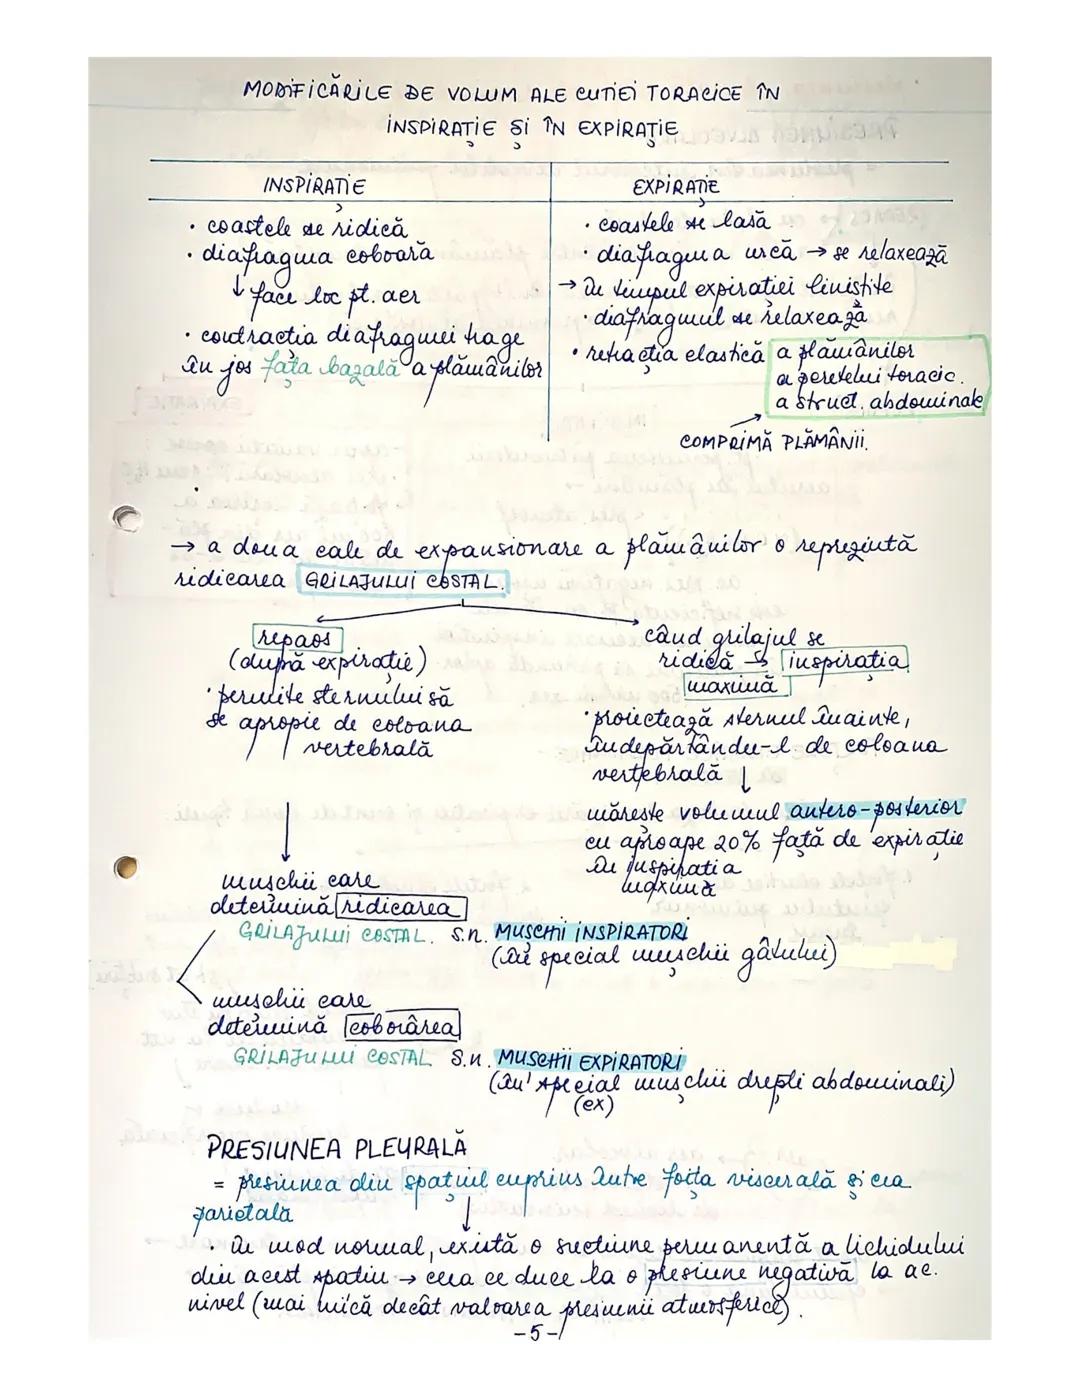 MODIFICĂRILE DE VOLUM ALE CUTIEI TORACICE ÎN
INSPIRAȚIE ȘI ÎN EXPIRAȚIE
INSPIRAȚIE
· coastele se ridică
· diafragma coboară
↓ face loc pt. aer
· contracția diafragmei trage
în jos fața bazală a plămânilor
EXPIRAȚIE
· coastele se lasă
· diafragma urcă → se relaxează
→ în timpul expirației liniștite
· diafragmul se relaxează
· retracția elastică a plămânilor
a peretelui toracic.
a struct. abdominale
COMPRIMĂ PLĂMÂNII.
→ a doua cale de expansionare a plămânilor o reprezintă
ridicarea GRILAJULUI COSTAL.
repaos
(după expirație)
· permite sternului să
se apropie de coloana
vertebrală
când grilajul se
ridică → inspirația
maximă
· proiectează sternul înainte,
îndepărtându-l de coloana
vertebrală ↓
mărește volumul antero-posterior
cu aproape 20% față de expirație
în inspirația
maximă
mușchii care
determină ridicarea
GRILAJULUI COSTAL. s.n. MUȘCHII INSPIRATORI
(în special mușchii gâtului)
mușchii care
determină coborârea
GRILAJULUI COSTAL s.n. MUSCHII EXPIRATORI
(în special mușchii drepți abdominali)
(ex)
PRESIUNEA PLEURALĂ
= presiunea din spațiul cuprins între foița viscerală și cea
parietală
· În mod normal, există o sucțiune permanentă a lichidului
din acest spațiu → ceea ce duce la o presiune negativă la ac.
nivel (mai mică decât valoarea presiunii atmosferice).
-5-